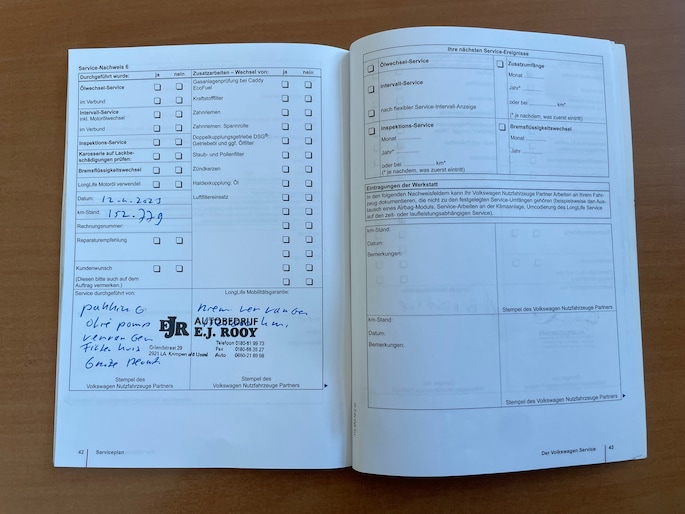 Service-Nachweis 6
Durchgeführt wurde: ja nein
Ölwechsel-Service
im Verbund
Intervall-Service
inkl. Motorölwechsel
im Verbund
Inspektions-Service
Karosserie auf Lackbe-
schädigungen prüfen:
Bremsflüssigkeitswechsel
LongLife Motoröl verwendet
Datum:
km-Stand: 152.779
Rechnungsnummer:
Reparaturempfehlung
Kundenwunsch
(Diesen bitte auch auf dem
Auftrag vermerken.)
Service durchgeführt von:
Zusatzarbeiten – Wechsel von: ja nein
Gasanlagenprüfung bei Caddy
EcoFuel
Kraftstofffilter
Zahnriemen
Zahnriemen: Spannrolle
Doppelkupplungsgetriebe DSG®:
Getriebeöl und ggf. Ölfilter
Staub- und Pollenfilter
Zündkerzen
Haldexkupplung: Öl
Luftfiltereinsatz
LongLife Mobilitätsgarantie:
pakking
olie pomp
vervangen
riem vervangen
EJR AUTOBEDRIJF
E.J. ROOY
2921 LA Krimpen a/d IJssel
Telefoon
Fax
Auto
Stempel des
Volkswagen Nutzfahrzeuge Partners
Stempel des
Volkswagen Nutzfahrzeuge Partners
42 Serviceplan
Ihre nächsten Service-Ereignisse
Ölwechsel-Service
Intervall-Service
nach flexibler Service-Intervall-Anzeige
Inspektions-Service
Monat
Jahr*
oder bei km*
(* je nachdem, was zuerst eintritt)
Zusatzumfänge
Monat
Jahr*
oder bei km*
(* je nachdem, was zuerst eintritt)
Bremsflüssigkeitswechsel
Monat
Jahr
Eintragungen der Werkstatt
In den folgenden Nachweisfeldern kann Ihr Volkswagen Nutzfahrzeuge Partner Arbeiten an Ihrem Fahr-
zeug dokumentieren, die nicht zu den festgelegten Service-Umfängen gehören (beispielsweise den Aus-
tausch eines Airbag-Moduls, Service-Arbeiten an der Klimaanlage, Umcodierung des LongLife Service
auf den zeit- oder laufleistungsabhängigen Service).
km-Stand:
Datum:
Bemerkungen:
Stempel des Volkswagen Nutzfahrzeuge Partners
km-Stand:
Datum:
Bemerkungen:
Stempel des
Volkswagen Nutzfahrzeuge Partners
Der Volkswagen Service 43